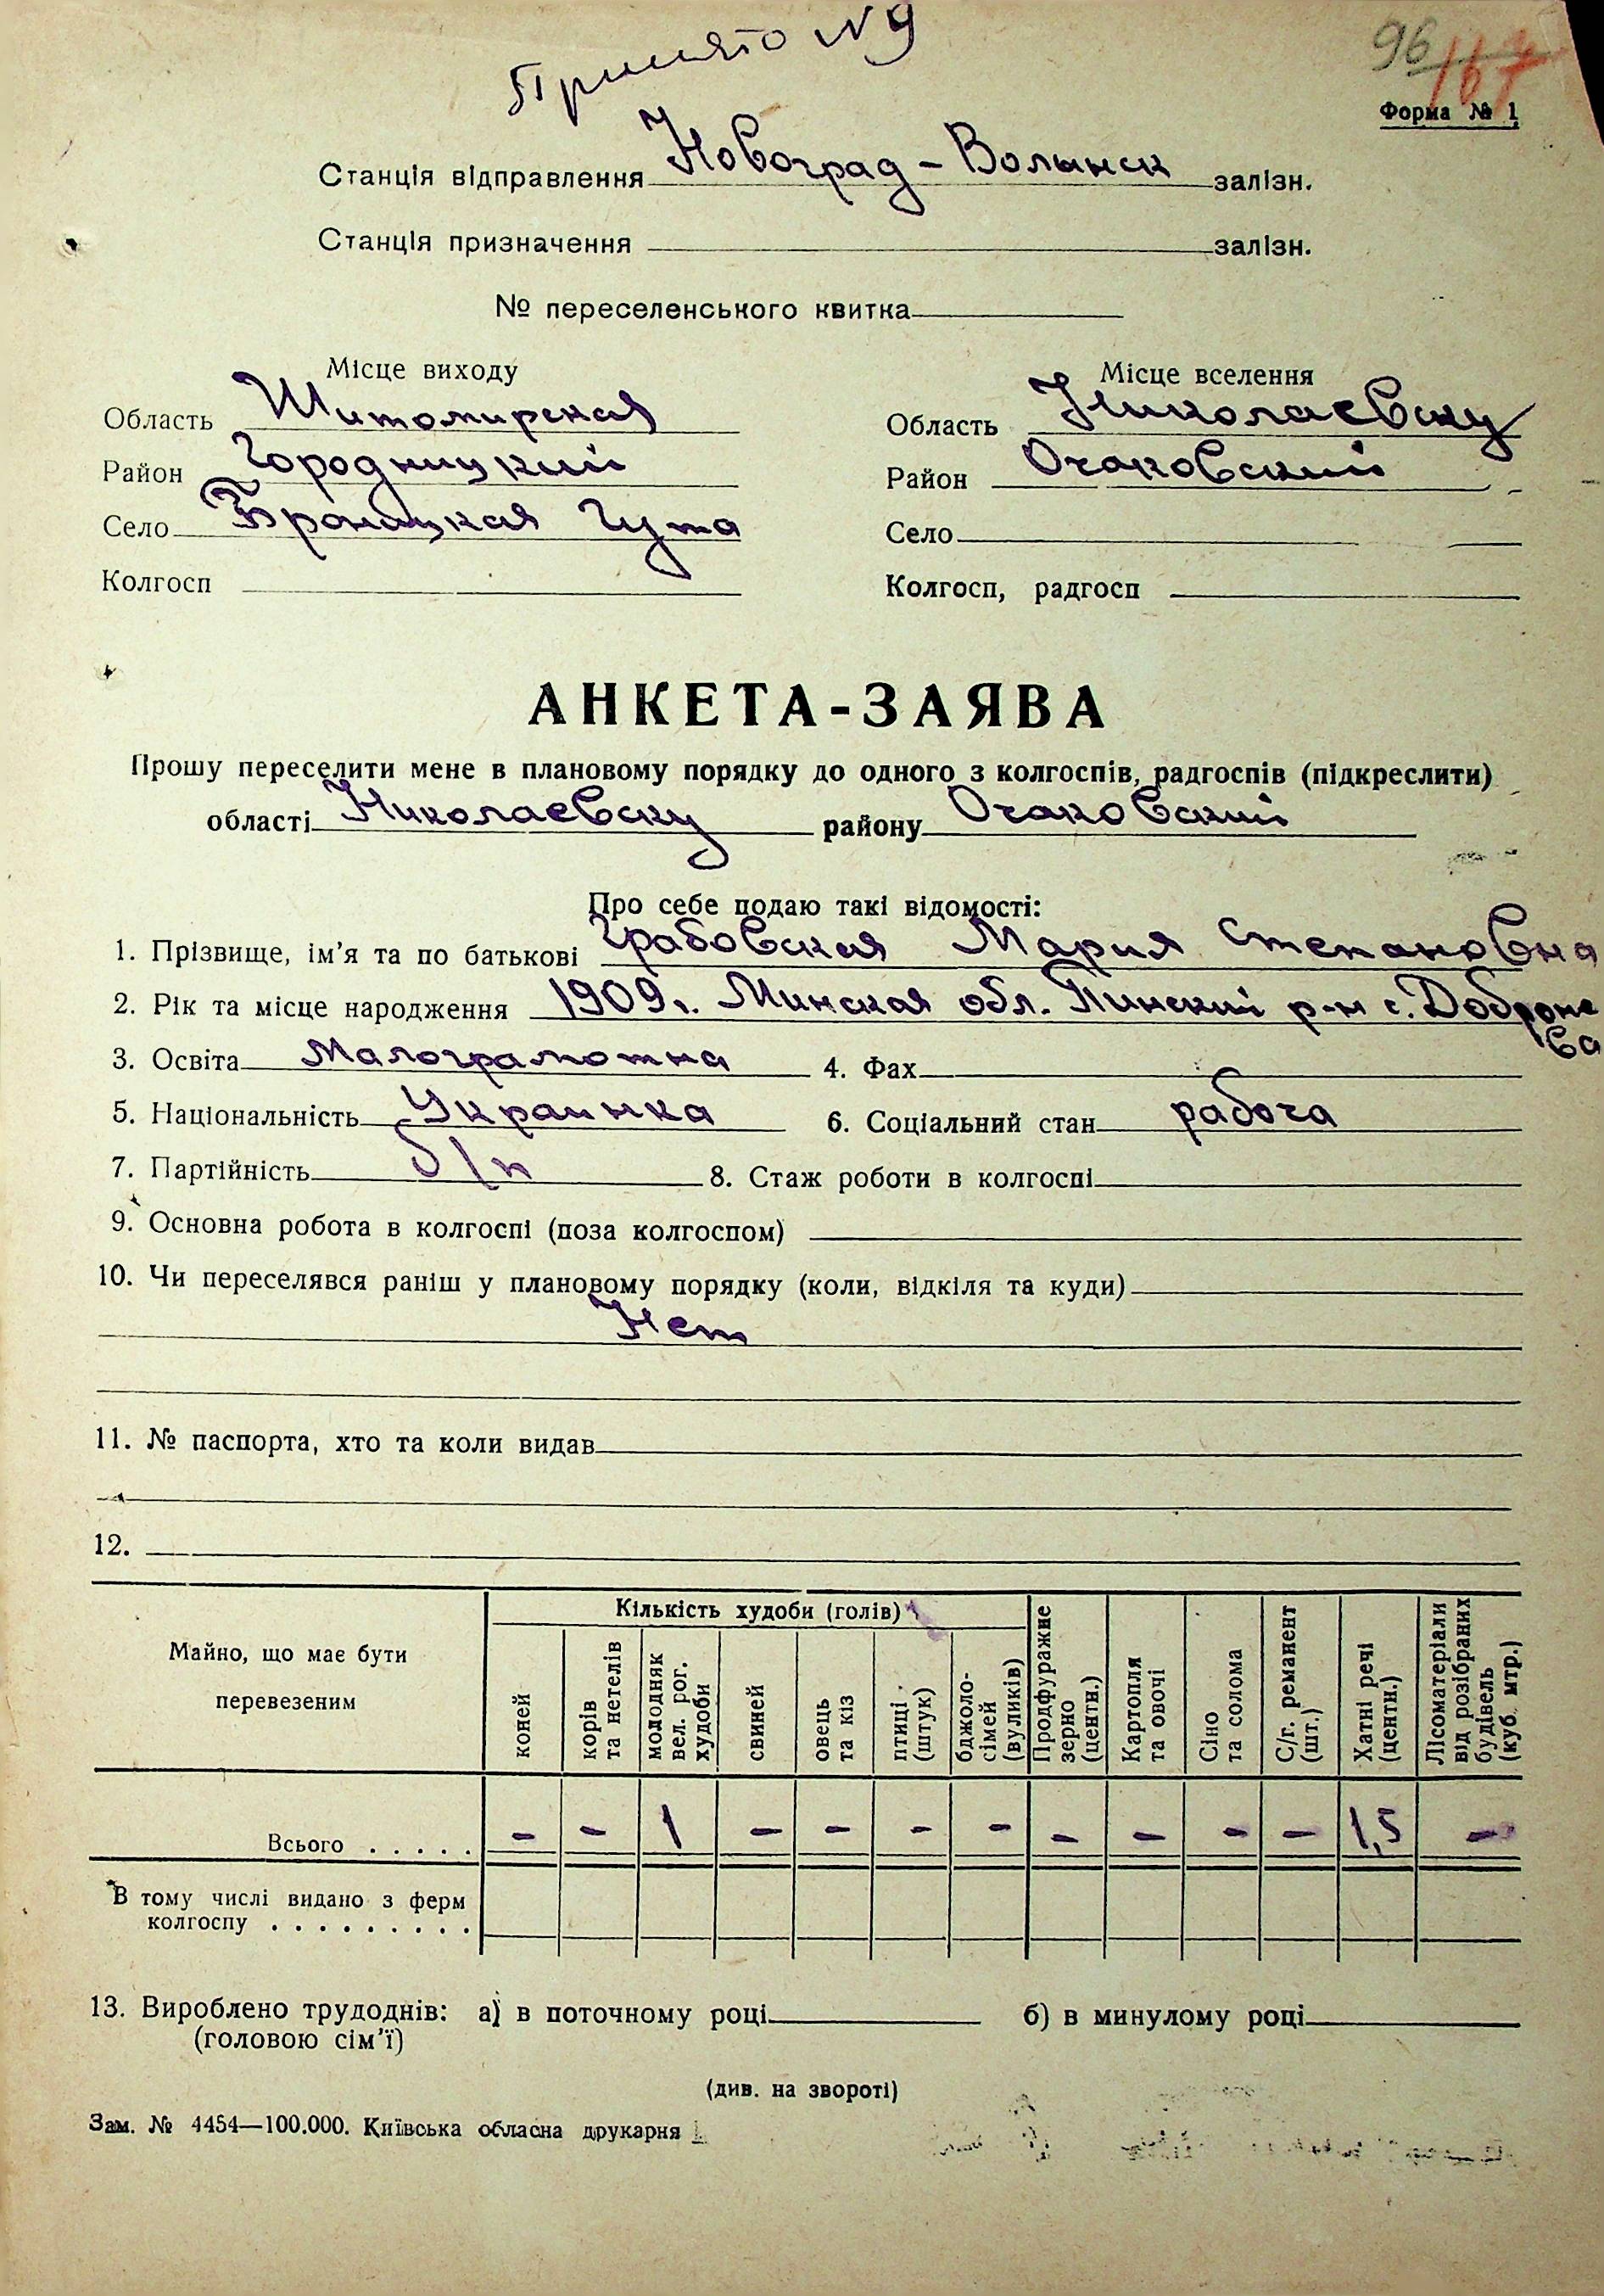 Принято N 9
96 167
Форма № 1
Станція відправлення Новоград-Волынск залізн.
Станція призначення залізн.
№ переселенського квитка
Місце виходу
Область Житомирская
Район Городницкий
Село Броницкая Гута
Колгосп
Місце вселення
Область Николаевску
Район Очаковский
Село
Колгосп, радгосп
АНКЕТА-ЗАЯВА
Прошу переселити мене в плановому порядку до одного з колгоспів, радгоспів (підкреслити)
області Николаевску району Очаковский
Про себе подаю такі відомості:
1. Прізвище, ім'я та по батькові Грабовская Мария Степановна
2. Рік та місце народження 1909г. Минская обл. Пинский р-н с. Доброне
ва
3. Освіта Малограмотна 4. Фах
5. Національність Украинка 6. Соціальний стан рабоча
7. Партійність б/п 8. Стаж роботи в колгоспі
9. Основна робота в колгоспі (поза колгоспом)
10. Чи переселявся раніш у плановому порядку (коли, відкіля та куди)
Нет
11. № паспорта, хто та коли видав
12.
Майно, що має бути перевезеним
Кількість худоби (голів)
коней
корів та нетелів
молодняк вел. рог. худоби
свиней
овець та кіз
птиці (штук)
бджоло-сімей (вуликів)
Продфуражне зерно (центн.)
Картопля та овочі
Сіно та солома
С/г. реманент (шт.)
Хатні речі (центн.)
Лісоматеріали від розібраних будівель (куб. мтр.)
Всього . . . . . - - 1 - - - - - - - - 1,5 -
В тому числі видано з ферм
колгоспу . . . . . . . . .
13. Вироблено трудоднів: а) в поточному році б) в минулому році
(головою сім'ї)
(див. на звороті)
Зам. № 4454—100.000. Київська обласна друкарня